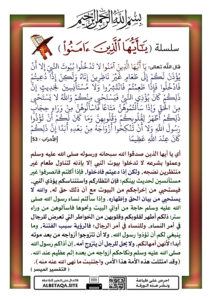 بِسْمِ اللَّهِ الرَّحْمَنِ الرَّحِيمِ
سلسلة ﴿ يَٰٓأَيُّهَا ٱلَّذِينَ ءَامَنُوا۟ ﴾
قال الله تعالى: يَا أَيُّهَا الَّذِينَ آمَنُوا لَا تَدْخُلُوا بُيُوتَ النَّبِيِّ إِلَّا أَنْ
يُؤْذَنَ لَكُمْ إِلَىٰ طَعَامٍ غَيْرَ نَاظِرِينَ إِنَاهُ وَلَٰكِنْ إِذَا دُعِيتُمْ
فَادْخُلُوا فَإِذَا طَعِمْتُمْ فَانْتَشِرُوا وَلَا مُسْتَأْنِسِينَ لِحَدِيثٍ إِنَّ
ذَٰلِكُمْ كَانَ يُؤْذِي النَّبِيَّ فَيَسْتَحْيِي مِنْكُمْ وَاللَّهُ لَا يَسْتَحْيِي
مِنَ الْحَقِّ وَإِذَا سَأَلْتُمُوهُنَّ مَتَاعًا فَاسْأَلُوهُنَّ مِنْ وَرَاءِ حِجَابٍ
ذَٰلِكُمْ أَطْهَرُ لِقُلُوبِكُمْ وَقُلُوبِهِنَّ وَمَا كَانَ لَكُمْ أَنْ تُؤْذُوا
رَسُولَ اللَّهِ وَلَا أَنْ تَنْكِحُوا أَزْوَاجَهُ مِنْ بَعْدِهِ أَبَدًا إِنَّ ذَٰلِكُمْ
كَانَ عِنْدَ اللَّهِ عَظِيمًا [الأحزاب: 53]
أي يا أيها الذين صدقوا الله سبحانه ورسوله صلى الله عليه وسلم
وعملوا بشرعه لا تدخلوا بيوت النبي إلا بإذنه لتناول طعام غير
منتظرين نضجه، ولكن إذا دعيتم فادخلوا، فإذا أكلتم فانصرفوا غير
مستأنسين لحديث بينكم؛ فإن انتظاركم واستئناسكم يؤذي النبي،
فيستحيي من إخراجكم من البيوت مع أن ذلك حق له، والله لا
يستحيي من بيان الحق وإظهاره. وإذا سألتم نساء رسول الله صلى
الله عليه وسلم حاجة من أواني البيت ونحوها فاسألوهن من وراء
ستر؛ ذلكم أطهر لقلوبكم وقلوبهن من الخواطر التي تعرض للرجال
في أمر النساء، وللنساء في أمر الرجال؛ فالرؤية سبب الفتنة، وما
ينبغي لكم أن تؤذوا رسول الله، ولا أن تتزوجوا أزواجه من بعد موته
أبدا؛ لأنهن أمهاتكم، ولا يحل للرجل أن يتزوج أمه، إن أذاكم رسول الله
صلى الله عليه وسلم ونكاحكم أزواجه من بعده إثم عظيم عند الله.
(وقد امتثلت هذه الأمة هذا الأمر، واجتنبت ما نهى الله عنه منه). ( التفسير الميسر )
ALBETAQA.SITE